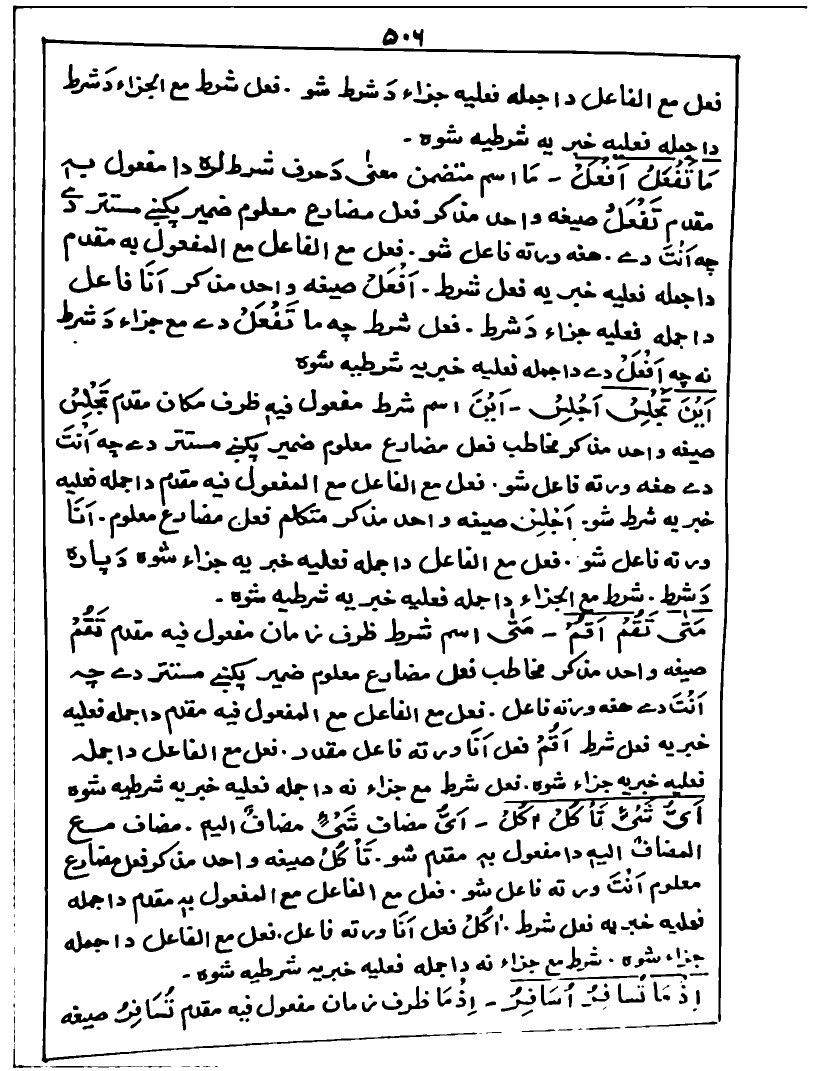 ۵۰۶
فعل مع الفاعل دا جمله فعلیه جزاء دَ شرط شو . فعل شرط مع الجزاء دَ شرط
دا جمله فعلیه خبر یه شرطیه شوه -
مَا تَفْعَلْ اَفْعَلْ - مَا اسم متضمن معنیٰ دَ حرف شرط لره دا مفعول به
مقدم تَفْعَلْ صیغه واحد مذکر فعل مضارع معلوم ضمیر پکښے مستتر دے
چه اَنْتَ دے . هغه ورته فاعل شو . فعل مع الفاعل مع المفعول به مقدم
دا جمله فعلیه خبر یه فعل شرط . اَفْعَلْ صیغه واحد مذکر اَنَا فاعل
دا جمله فعلیه جزاء دَ شرط . فعل شرط چه ما تَفْعَلْ دے مع جزاء دَ شرط
نه چه اَفْعَلْ دے دا جمله فعلیه خبریه شرطیه شوه
اَیْنَ تَجْلِسْ اَجْلِسْ - اَیْنَ اسم شرط مفعول فیه ظرف مکان مقدم تَجْلِسْ
صیغه واحد مذکر مخاطب فعل مضارع معلوم ضمیر پکښے مستتر دے چه اَنْتَ
دے هغه ورته فاعل شو . فعل مع الفاعل مع المفعول فیه مقدم دا جمله فعلیه
خبر یه شرط شو . اَجْلِسْ صیغه واحد مذکر متکلم فعل مضارع معلوم . اَنَا
ورته فاعل شو . فعل مع الفاعل دا جمله فعلیه خبر یه جزاء شوه دَ پاره
دَ شرط . شرط مع الجزاء دا جمله فعلیه خبر یه شرطیه شوه -
مَتیٰ تَقُمْ اَقُمْ - مَتیٰ اسم شرط ظرف زمان مفعول فیه مقدم تَقُمْ
صیغه واحد مذکر مخاطب فعل مضارع معلوم ضمیر پکښے مستتر دے چه
اَنْتَ دے هغه ورته فاعل . فعل مع الفاعل مع المفعول فیه مقدم دا جمله فعلیه
خبریه فعل شرط اَقُمْ فعل اَنَا ورته فاعل مقدر . فعل مع الفاعل دا جمله
فعلیه خبریه جزاء شوه . فعل شرط مع جزاء نه دا جمله فعلیه خبریه شرطیه شوه
اَیَّ شَیْءٍ تَأْ کُلْ اٰکُلْ - اَیَّ مضاف شَیْءٍ مضافٌ الیه . مضاف مع
المضافٌ الیه دا مفعول به مقدم شو . تَأْ کُلْ صیغه واحد مذکر فعل مضارع
معلوم اَنْتَ ورته فاعل شو . فعل مع الفاعل مع المفعول به مقدم دا جمله
فعلیه خبر یه فعل شرط . اٰکُلْ فعل اَنَا ورته فاعل . فعل مع الفاعل دا جمله
جزاء شوه . شرط مع جزاء نه دا جمله فعلیه خبریه شرطیه شوه -
اِذْ مَا تُسَافِرْ اُسَافِرْ - اِذْمَا ظرف زمان مفعول فیه مقدم تُسَافِرْ صیغه